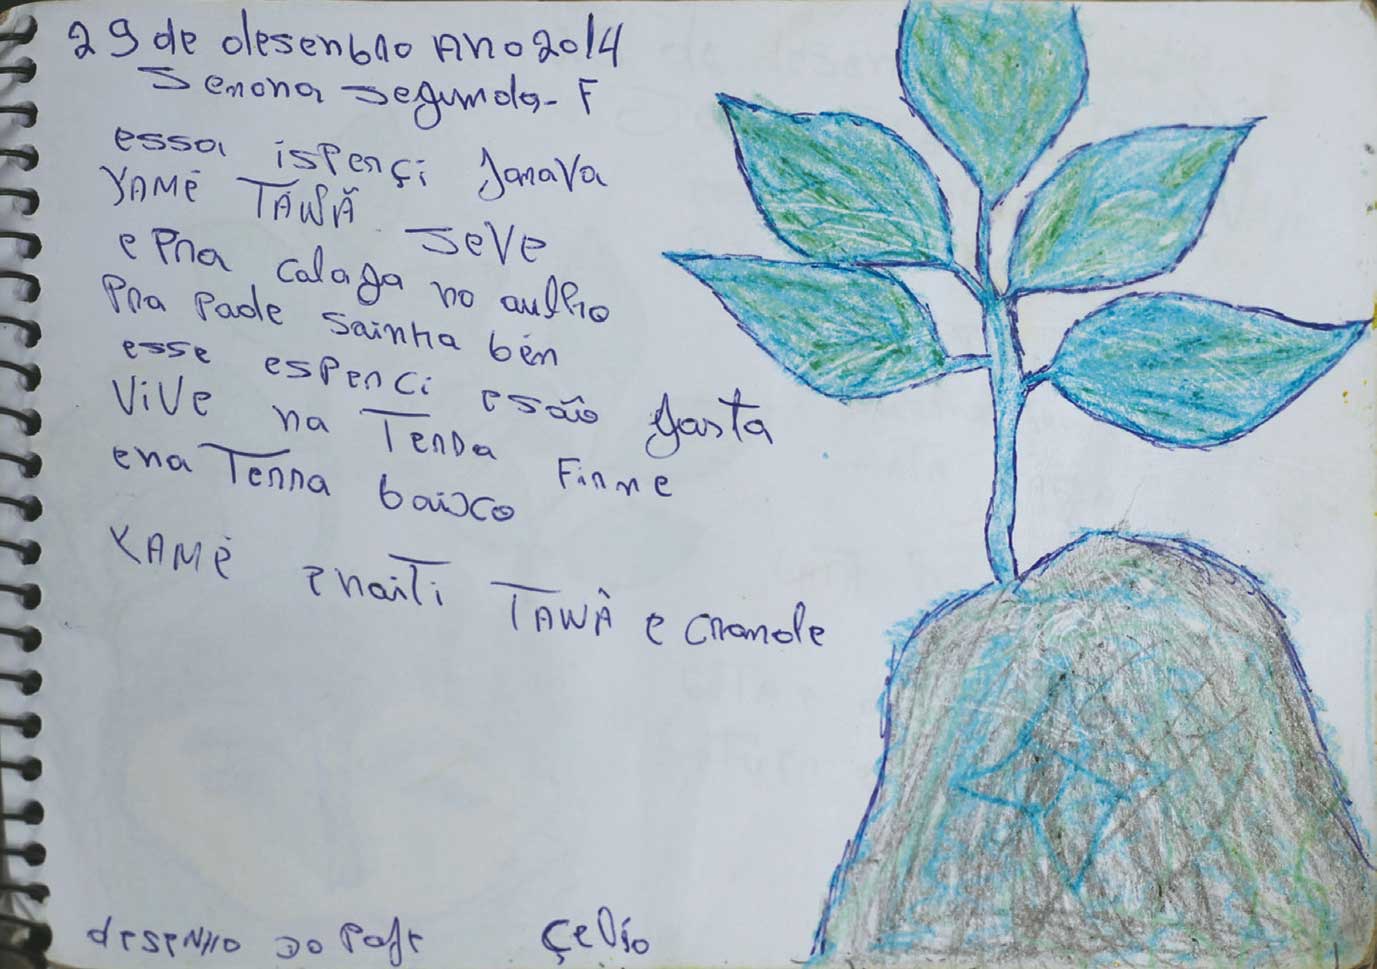 29 de desenbro Ano 2014
Semana segumda - F
essa ispençi Jarava
YAMÉ TÁWÃ seve
e Pra calaga no aulho
Pra Pade sainha bén
esse espenci esão gasta
ViVe na Tenda Firme
ena Tenna baixo
YAMÉ enaiti TAWÂ e crande
desenho do Pofe Çelio